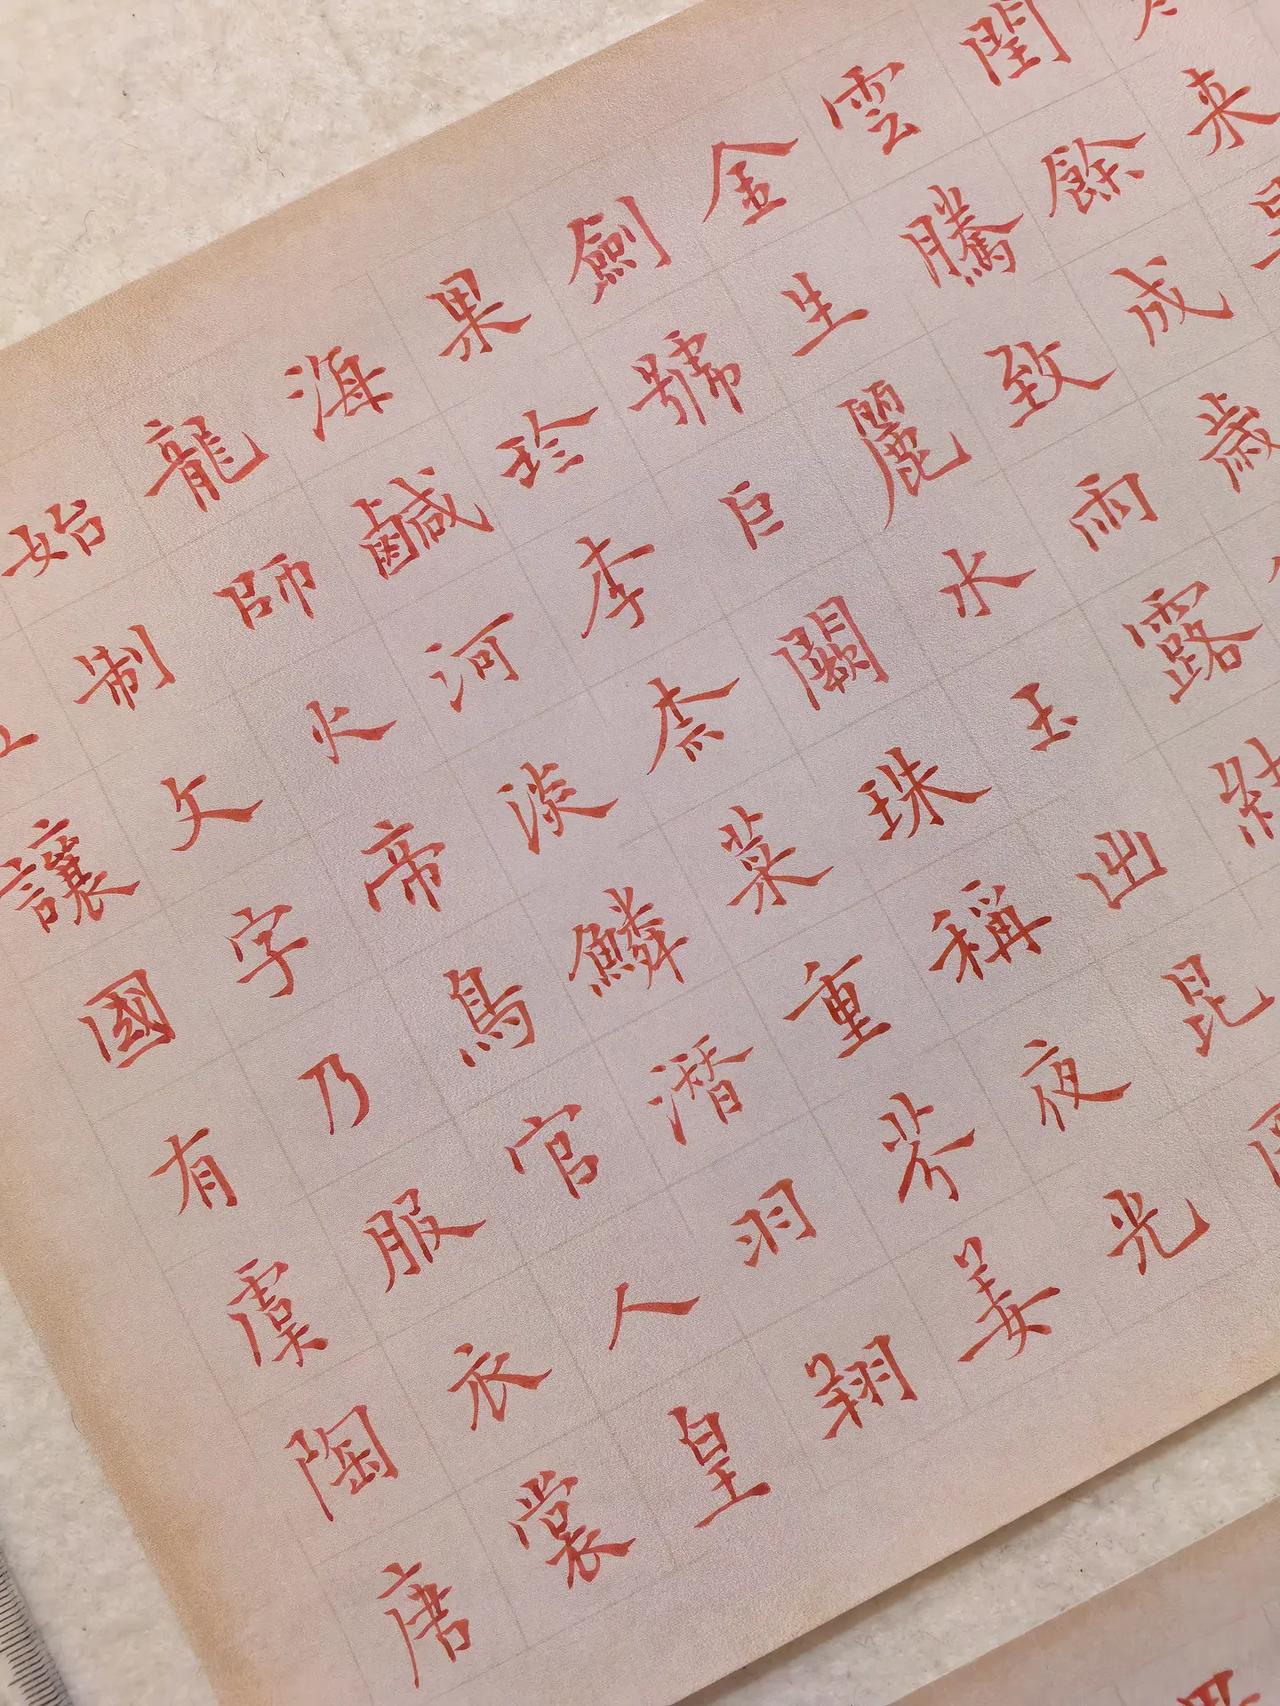 来
閏餘成歲
雲騰致雨露結
金生麗水玉出昆
劍號巨闕珠稱夜光
果珍李柰菜重芥姜
海鹹河淡鱗潛羽翔
龍師火帝鳥官人皇
始制文字乃服衣裳
讓國有虞陶唐